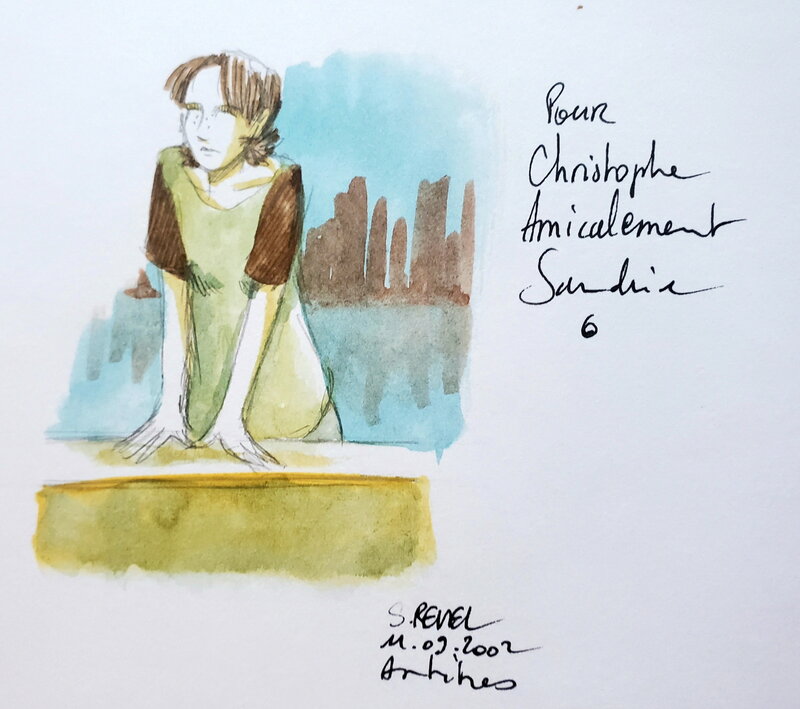 Pour
Christophe
Amicalement
Sandrine
6
S. REVEL
11.09.2002
Antibes